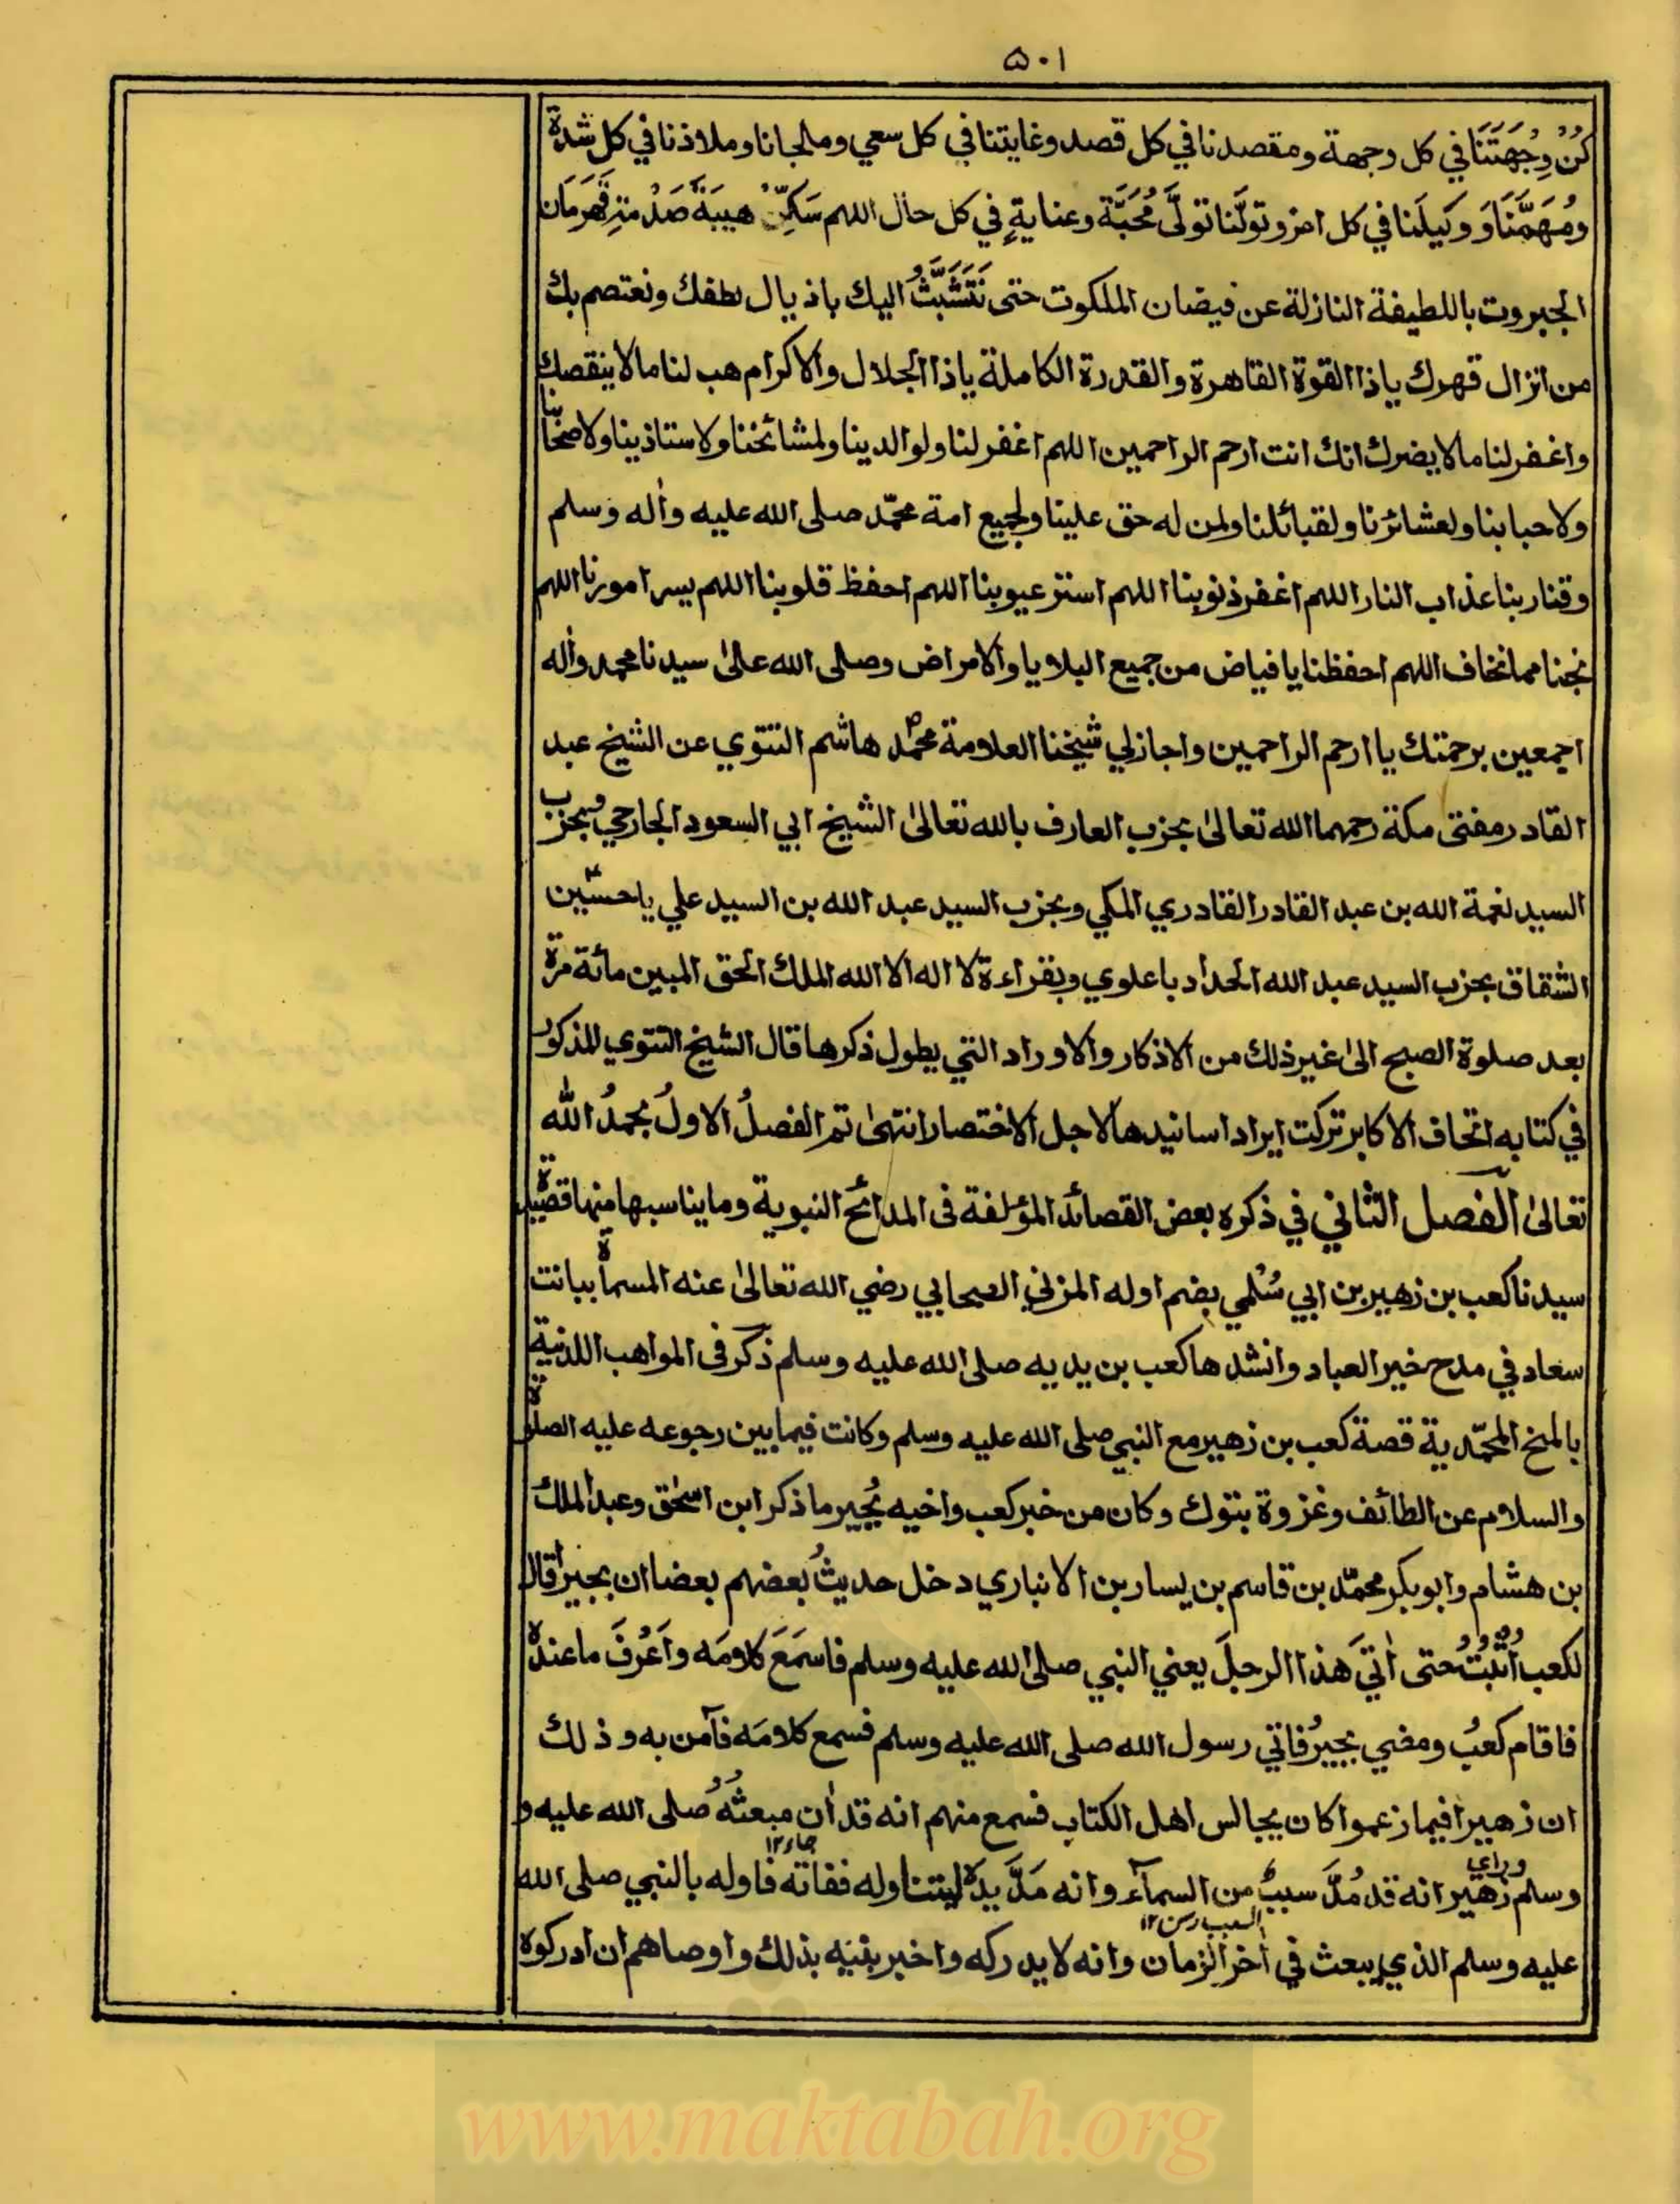 ٥٠١
كُنْ وِجْهَتَنَا في كل وجهة ومقصدنا في كل قصد وغايتنا في كل سعي وملجانا وملاذنا في كل شدة
ومُهِمَّنَا وَ وَكِيلَنا في كل امر وتولّنا تولّى مُحَبَّة وعنايةٍ في كل حال اللهم سَكِّنْ هيبَةَ صَدْمَتِ قَهَرَمَان
الجبروت باللطيفة النازلة عن فيضان الملكوت حتى نَتَشَبَّثُ اليك باذيال لطفك ونعتصم بك
من انزال قهرك ياذا القوة القاهرة والقدرة الكاملة ياذا الجلال والاكرام هب لنا مالا ينقصك
واغفر لنا مالا يضرك انك انت ارحم الراحمين اللهم اغفر لنا ولوالدينا ولمشائخنا ولاستاذينا ولاصحابنا
ولاحبابنا ولعشائرنا ولقبائلنا ولمن له حق علينا ولجميع امة محمّد صلى الله عليه وأله وسلم
وقنا ربنا عذاب النار اللهم اغفر ذنوبنا اللهم استر عيوبنا اللهم احفظ قلوبنا اللهم يسر امورنا اللهم
نجنا مما نخاف اللهم احفظنا يا فياض من جميع البلايا والامراض وصلى الله على سيدنا محمد وأله
اجمعين برحمتك يا ارحم الراحمين واجازلي شيخنا العلامة محمد هاشم التتوي عن الشيخ عبد
القادر مفتى مكة رحمهما الله تعالى بحزب العارف بالله تعالى الشيخ ابي السعود الجارحي وبحزب
السيد نعمة الله بن عبد القادر القادري المكي وبحزب السيد عبد الله بن السيد علي باحسين
الشقاق بحزب السيد عبد الله الحداد باعلوي وبقراءة لا اله الا الله الملك الحق المبين مائة مرة
بعد صلوة الصبح الى غير ذلك من الاذكار والاوراد التي يطول ذكرها قال الشيخ التتوي المذكور
في كتابه اتحاف الاكابر تركت ايراد اسانيدها لاجل الاختصار انتهى تم الفصلُ الاولُ بحمدُ الله
تعالى الفصل الثاني في ذكره بعض القصائد المؤلفة فى المدائح النبوية وما يناسبها منها قصيدة
سيدنا كعب بن زهير بن ابي سُلمي بضم اوله المزني الصحابي رضي الله تعالى عنه المسماة ببانت
سعاد في مدح خير العباد وانشدها كعب بن يديه صلى الله عليه وسلم ذكر فى المواهب اللدنية
بالمنح المحمّدية قصة كعب بن زهير مع النبي صلى الله عليه وسلم وكانت فيما بين رجوعه عليه الصلوة
والسلام عن الطائف وغزوة بتوك وكان من خبر كعب واخيه بُجير ما ذكر ابن اسحٰق وعبد الملك
بن هشام وابو بكر محمّد بن قاسم بن يسار بن الانباري دخل حديثُ بعضهم بعضا ان بجيرا قال
لكعب اُثْبُتْ حتى اٰتي هذا الرجلَ يعني النبي صلى الله عليه وسلم فاسمَعَ كلامَه واَعْرُفَ ما عنده
فاقام كعبُ ومضي بجيرُ فاتي رسول الله صلى الله عليه وسلم فسمع كلامَه فآمن به وذلك
ان زهيرا فيما زعموا كان يجالس اهل الكتاب فسمع منهم انه قد اٰن مبعثُهُ صلى الله عليه و
جاء ١٢
وسلم وراي زهير انه قد مُدَّ سببٌ من السمآء وانه مَدَّ يدَهُ ليتناوله ففاته فاوله بالنبي صلى الله
السبب رسن ١٢
عليه وسلم الذي يبعث في أخر الزمان وانه لا يدركه واخبر بنيه بذلك واوصاهم ان ادركوه
www.maktabah.org